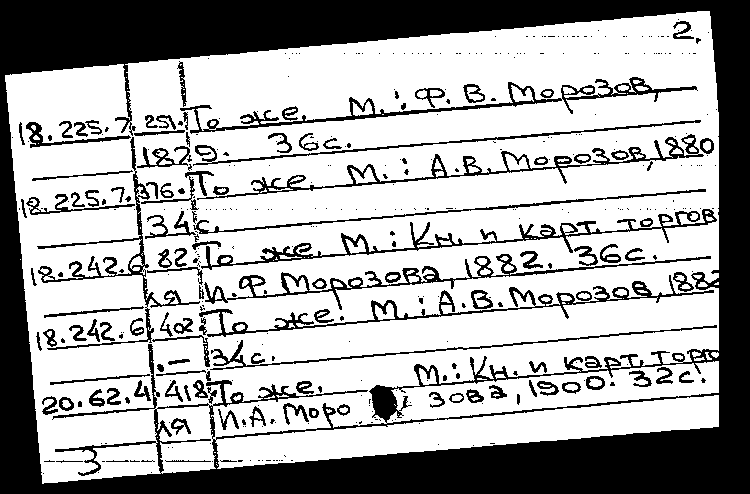 2.
18.225.7.251. То же. М.: Ф. В. Морозов,
1829. 36с.
18.225.7.376. То же. М.: А.В. Морозов, 1880
34с.
18.242.6.82. То же. М.: Кн. и карт. торгов
ля И.Ф. Морозова, 1882. 36с.
18.242.6.402. То же. М.: А.В. Морозов, 1882
.— 34с.
20.62.4.418. То же. М.: Кн. и карт. торго
ля И.А. Моро зова, 1900. 32с.
3